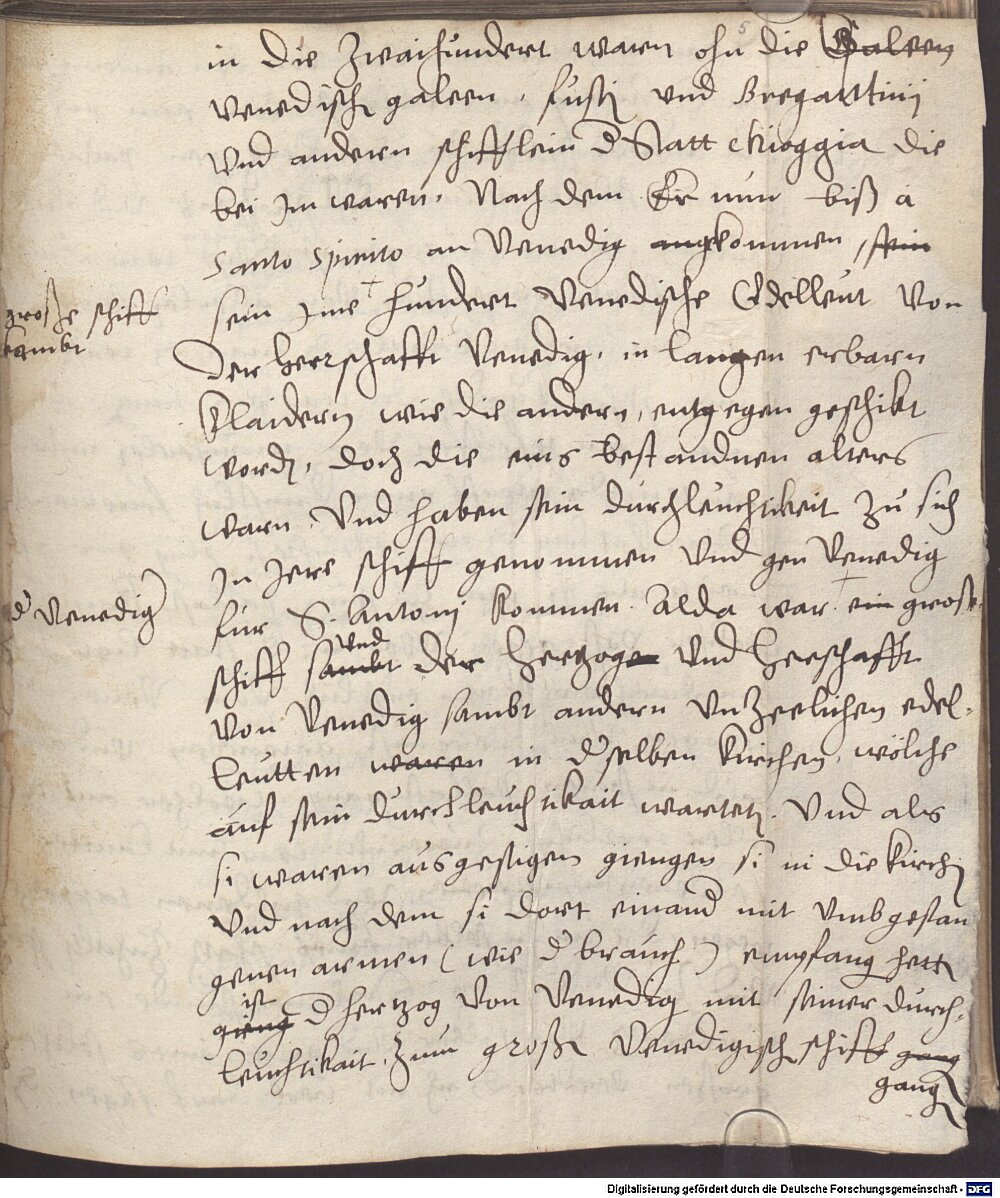 in die Zwaihundert waren ohn die Galeen
Venedisch galeen, fusti und Bregantinij
Und andern schifflein d Statt Chioggia die
bei Im waren, Nach dem Er nun biß a
Santo Spirito an Venedig angekommen, sein
sein Ime hundert Venedische Edelleut Von
große schiff
sambt
Der herrschafft Venedig, in langen erbarn
Klaidern wie die andern, entgegen geschikt
word, doch die eins bestandnen alters
warn. Und haben sein durchleuchtikeit zu sich
In Iere schiff genommen Und gen Venedig
für S. Antonij kommen. Alda war ein große
d Venedig
und
schiff sambt der Hertzoge und Herschafft
Von Venedig sambt andern Unzeelichen edel-
leutten waren in dselben kirchen, wölche
auf sein durchleuchtikait wartet. Und als
si waren ausgestigen giengen si in die kirch
Und nach dem si dort einand mit Umbgefan
genen armen (wie d brauch) empfang hett
ist
gieng d hertzog Von Venedig mit seiner durch-
leuchtikait, zum große Venedigisch schiff gang
gang
Digitalisierung gefördert durch die Deutsche Forschungsgemeinschaft - DFG